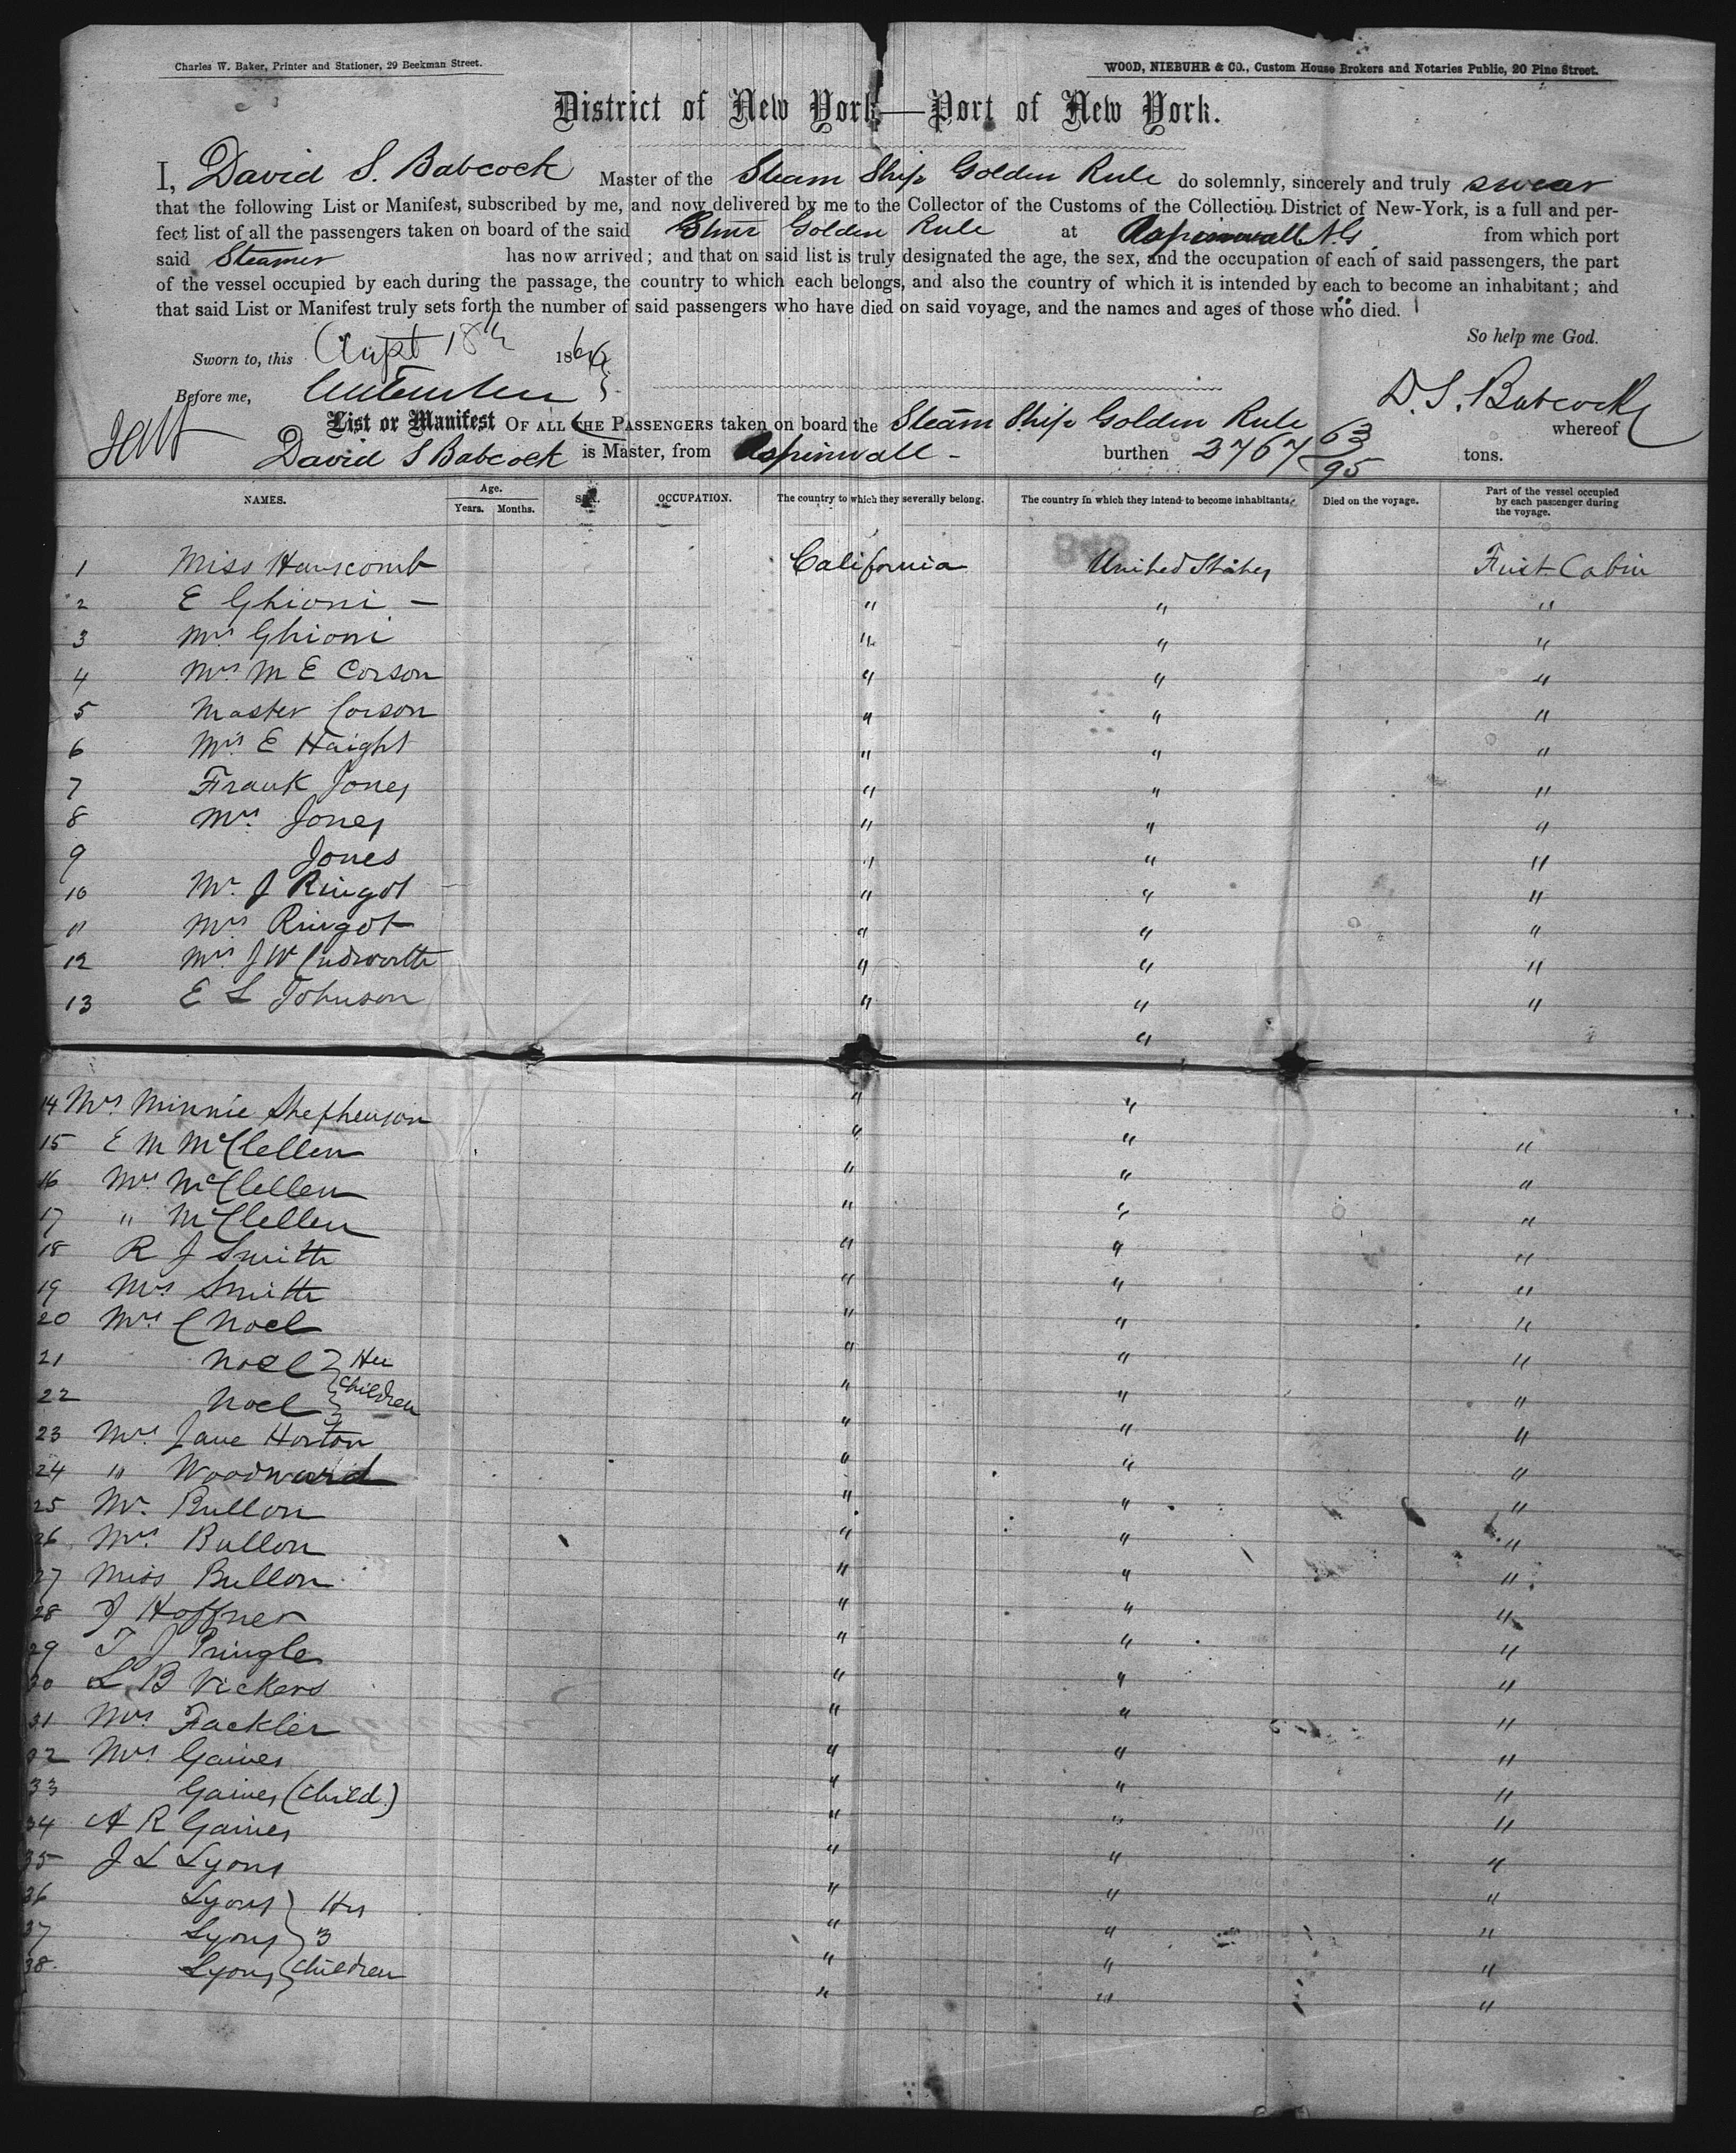 Charles W. Baker, Printer and Stationer, 29 Beekman Street.
WOOD, NIEBUHR & CO., Custom House Brokers and Notaries Public, 20 Pine Street.
District of New York—Port of New York.
I, David S. Babcock Master of the Steam Ship Golden Rule do solemnly, sincerely and truly swear
that the following List or Manifest, subscribed by me, and now delivered by me to the Collector of the Customs of the Collection District of New-York, is a full and per-
fect list of all the passengers taken on board of the said Stmr Golden Rule at Aspinwall N.G. from which port
said Steamer has now arrived; and that on said list is truly designated the age, the sex, and the occupation of each of said passengers, the part
of the vessel occupied by each during the passage, the country to which each belongs, and also the country of which it is intended by each to become an inhabitant; and
that said List or Manifest truly sets forth the number of said passengers who have died on said voyage, and the names and ages of those who died.
So help me God.
Sworn to, this 18th 186
Before me,
D. S. Babcock
List or Manifest OF ALL THE PASSENGERS taken on board the Steam Ship Golden Rule whereof
David S Babcock is Master, from Aspinwall - burthen 2767 63/95 tons.
NAMES. Age. Years. Months. SEX. OCCUPATION. The country to which they severally belong. The country in which they intend to become inhabitants. Died on the voyage. Part of the vessel occupied by each passenger during the voyage.
1 Miss Hanscomb California United States First Cabin
2 E Ghioni — " " "
3 Mrs Ghioni " " "
4 Mrs M E Corson " " "
5 Master Corson " " "
6 Mrs E Haight " " "
7 Frank Jones " " "
8 Mrs Jones " " "
9 Jones " " "
10 Mr J Ringot " " "
11 Mrs Ringot " " "
12 Mrs J W Cudworth " " "
13 E L Johnson " " "
"
14 Mrs Minnie Shephenson " "
15 E M McClellen " " "
16 Mrs McClellen " " "
17 " McClellen " " "
18 R J Smith " " "
19 Mrs Smith " " "
20 Mrs C Noel " " "
21 Noel } Her " " "
22 Noel } Children " " "
23 Mrs Jane Horton " " "
24 " Woodward " " "
25 Mr Bullon " " "
26 Mrs Bullon " " "
27 Miss Bullon " " "
28 J Hoffner " " "
29 T J Pringle " " "
30 L B Vickers " " "
31 Mrs Fackler " " "
32 Mrs Gaines " " "
33 Gaines (Child) " " "
34 A R Gaines " " "
35 J L Lyons " " "
36 Lyons } His " " "
37 Lyons } 3 " " "
38 Lyons } Children " " "
" " "